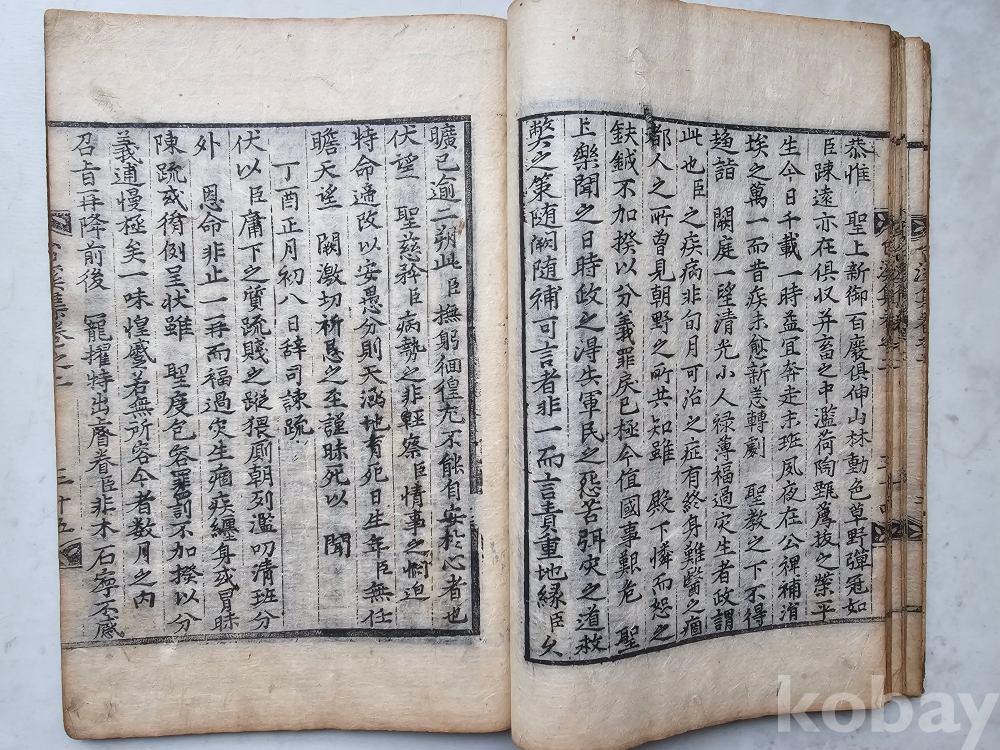 恭惟 聖上新御百廢俱伸山林動色草野彈冠如
臣踈遠亦在俱収并畜之中濫荷陶甄薦拔之榮平
生今日千載一時益宜奔走末班夙夜在公裨補涓
埃之萬一而昔疾未愈新恙轉劇 聖教之下不得
趨詣 闕庭一望清光小人禄薄福過灾生者政謂
此也臣之疾病非旬月可治之症有終身難醫之痼
都人之所曾見朝野之所共知雖 殿下憐而恕之
鈇鉞不加揆以分義罪戾已極今值國事艱危 聖
上樂聞之日時政之得失軍民之怨苦弭灾之道救
獘之策随闕随補可言者非一而言責重地緣臣久
曠已逾二朔此臣撫躬徊徨尤不能自安於心者也
伏望 聖慈矜臣病勢之非輕察臣情事之悶迫
特命遞改以安愚分則天涵地育死日生年臣無任
瞻天望 闕激切祈恳之至謹昧死以 聞
丁酉正月初八日辞司諫疏
伏以臣庸下之質疏賤之蹤猥厠朝列濫叨清班分
外 恩命非止一再而福過灾生痼疾纏身或冒昧
陳疏或循例呈狀雖 聖度包容罪罰不加揆以分
義逋慢極矣一味惶蹙若無所容今者數月之內
召旨再降前後 寵擢特出睿眷臣非木石寧不感
集卷之二
三十五
kobay